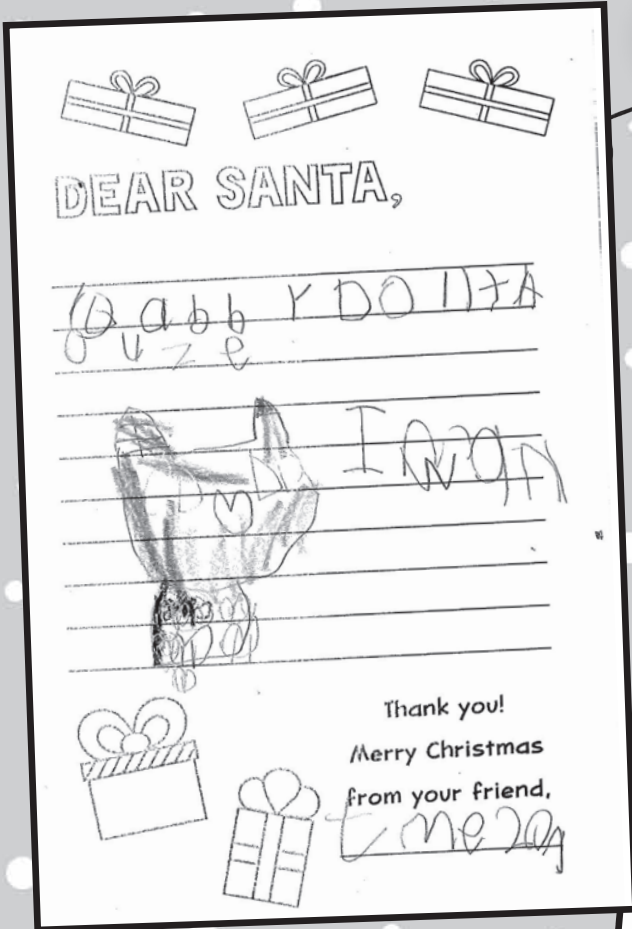 DEAR SANTA,
Gabby DOllHA
ouze
I Wan
Thank you!
Merry Christmas
from your friend,